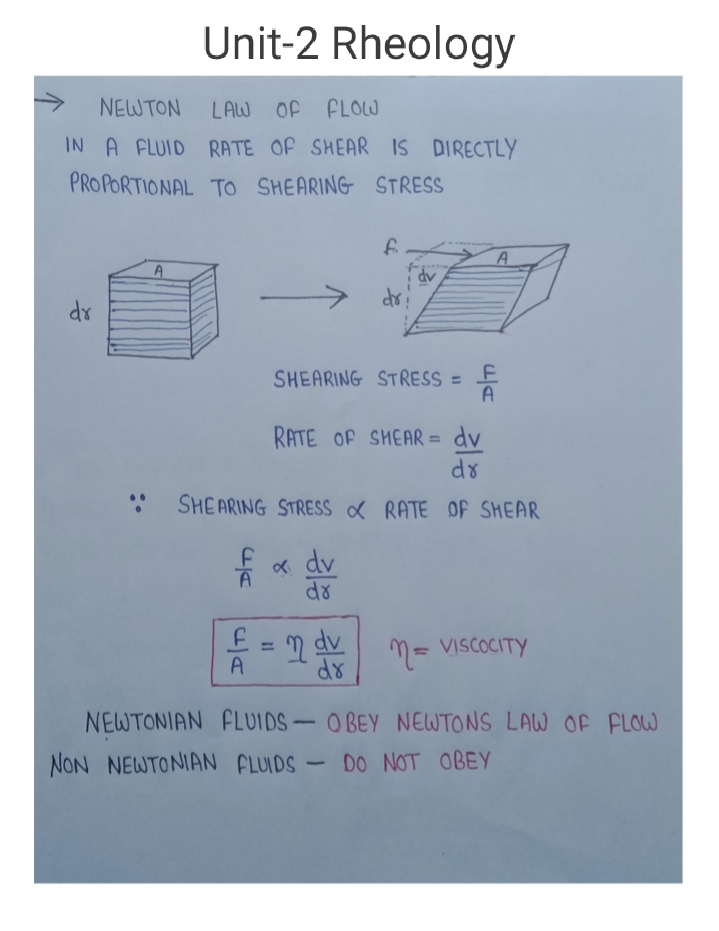 Unit-2 Rheology
→ NEWTON LAW OF FLOW
IN A FLUID RATE OF SHEAR IS DIRECTLY
PROPORTIONAL TO SHEARING STRESS
F
A
A
dv
dr
dr
SHEARING STRESS = F/A
RATE OF SHEAR = dv/dr
∵ SHEARING STRESS ∝ RATE OF SHEAR
F/A ∝ dv/dr
F/A = η dv/dr η = VISCOCITY
NEWTONIAN FLUIDS — OBEY NEWTONS LAW OF FLOW
NON NEWTONIAN FLUIDS — DO NOT OBEY